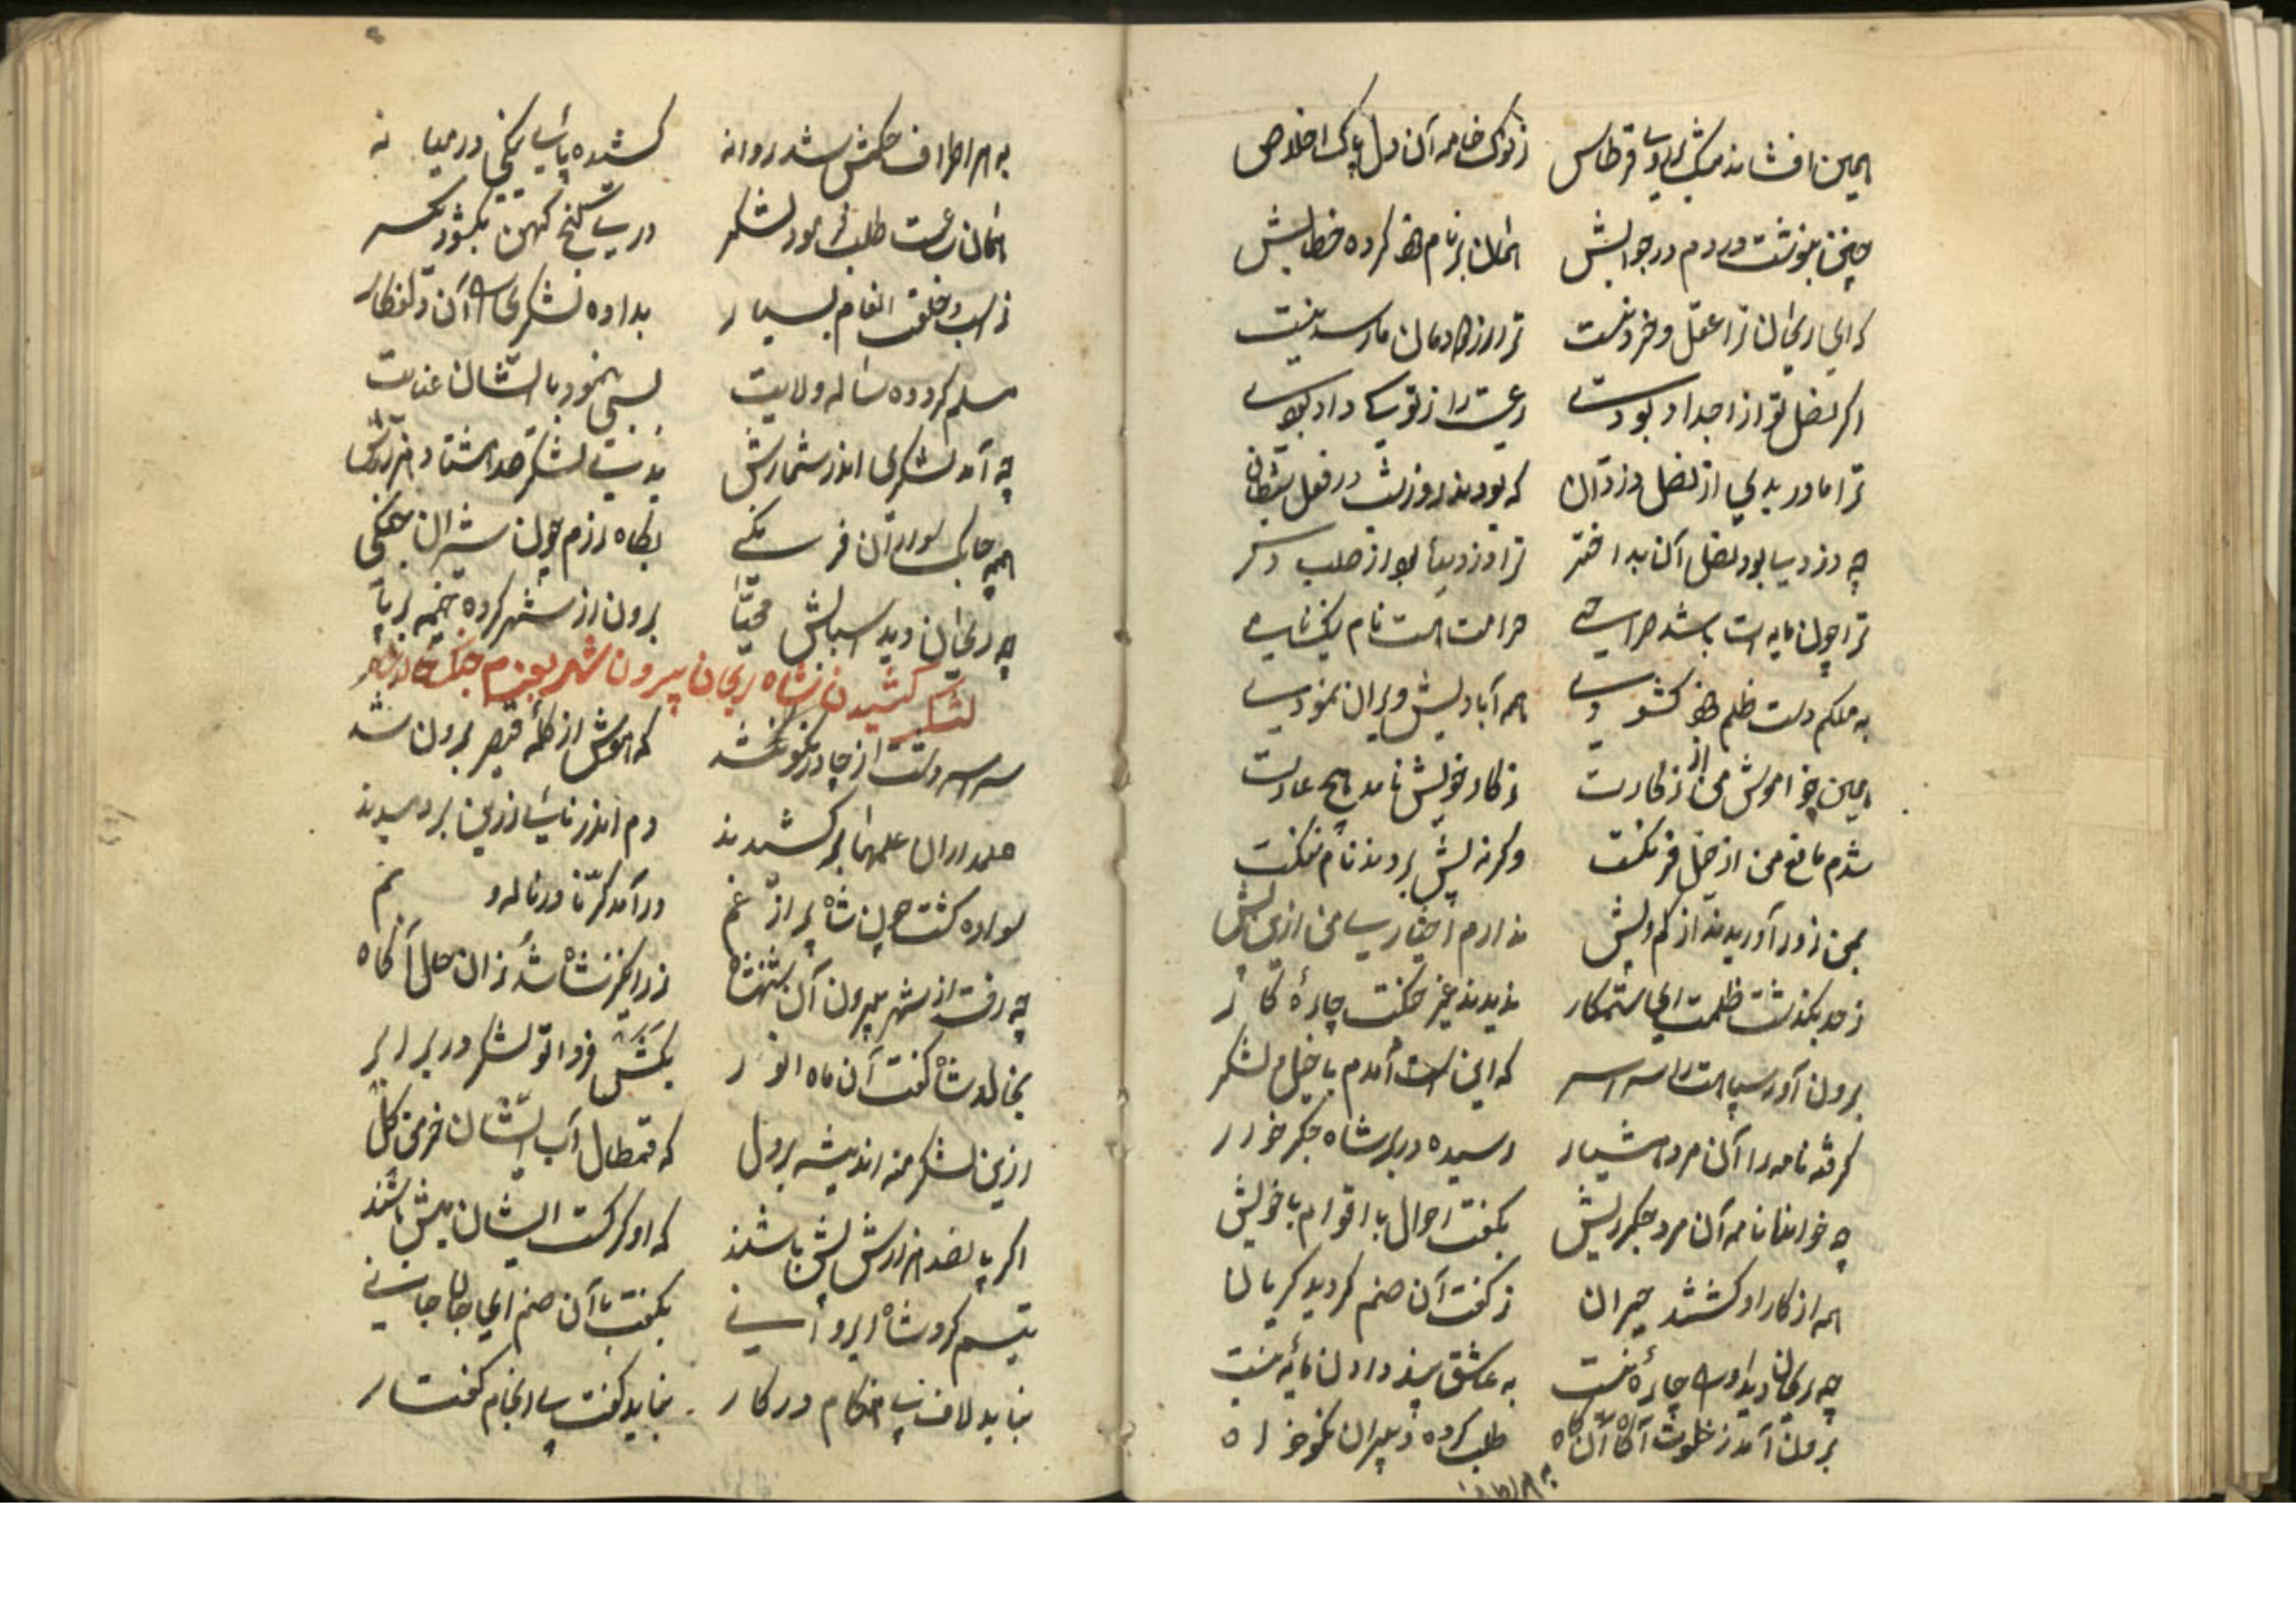 همین افشاند مشک بر روی قرطاس ز نوک خامه آن دل پاک اخلاص
چنین بنوشت در دم در جوابش همان بر نام خود کرده خطابش
که ای ریحان ترا عقل و خرد نیست ترا از زادمان ما رسد نیست
اکر نضل تو از اجداد بودی رعیت را ز تو داد بودی
ترا مادر بدی از نضل دزدان که بودند روز شب در فعل شیطان
چه دزدیها بود نضل آن بد اختر ترا دزدیها بود از صلب دکر
ترا چون مایه است باشد حرامی حرامت است نام نیک نامی
به ملکم دست ظلم خود کشودی همه آبادیش ویران نمودی
همین خواموش من از کارت ز کار خویش نامد هیچ عارت
شدم مانع من از خیل فرنکت وکرنه پیش بردند نام ننکت
بمن زور آوریدند از کم و بیش ندارم اختیاری من ازین بیش
ز حد بکذشت ظلمت ای ستمکار ندیدند غیر جنکت چارهٔ کار
برون آور سپاهت را سراسر که این است آمدم با خیل و لشکر
کرفته نامه را آن مرد هشیار رسیده در بر شاه جکرخوار
چه خواند نامه آن مرد جکرریش بکفت احوال با اقوام با خویش
همه از کار او کشتند حیران ز کفت آن صنم کردید کریان
چه ریحان دید او را چارهٔ نیست به عشق پند دادن مایهٔ نیست
برون آمد ز خلوت آن کاه طلب کرده ز پیران نکوخواه
به هر اطراف حکمش شد روانه کشیده پای نیکی در میانه
همان ساعت طلب بنمود لشکر در کنج کهن بکشود یکسر
ز اسب و خلعت انعام بسیار بداده لشکری را آن
مسلم کرد ده ساله ولایت بسی بنمود با ایشان عنایت
چه آمد لشکری اندر شمارش بدند لشکر صد هشتاد هزارش
همه چابک سوارن فرنکی بکاه رزم چون شیران جنکی
چه ریحان دید اسبابش مهیا برون از شهر کرده خیمه برپا
لشکر کشیدن شاه ریحان بیرون شهر بعزم جنک خاورشاه
سراسر دشت از چادر نکون شد که هوش از کله قیصر برون شد
علمداران علمها برکشیدند دم اندر نای زرین بردمیدند
سواره کشت چون شاه پر از غم درآمد کرّنا در ناله و نم
چه رفت از شهر بیرون آن شهنشاه زرانکیز شاه شد زان حال آکاه
بخاورشاه کفت آن ماه انور بکش فردا تو لشکر در برابر
ازین لشکر منه اندیشه بر دل که قمطال آب ایشان خرمن کل
اکر پانصد هزارش پیش باشند که او کرکست ایشان میش باشند
تبسم کرد شاه ابرو بکفت با آن صنم ای جان جانی
نباید لاف بی هنکام در کار نباید کفت بی انجام کفتار